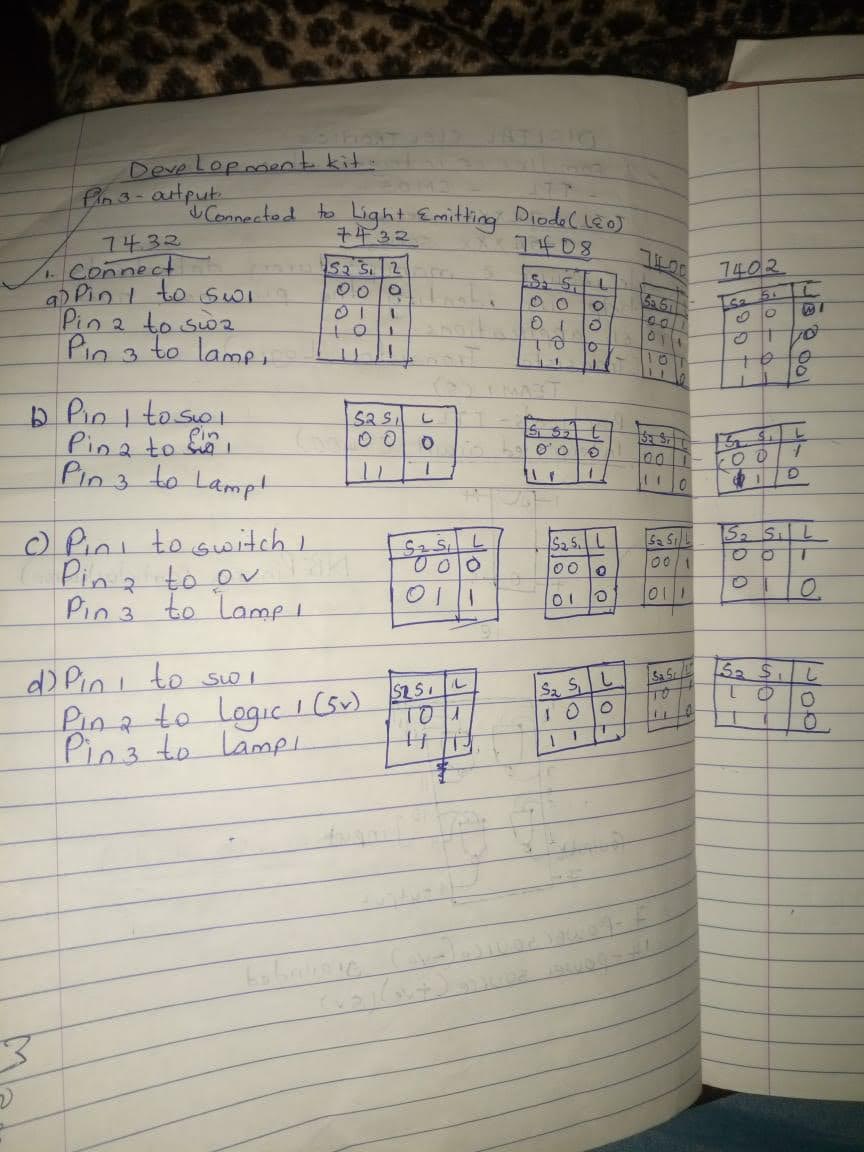 Development kit:
Pin 3 - output
↓Connected to Light Emitting Diode (LED)
7432 7432 7408 7400 7402
1. Connect
a) Pin 1 to sw1
Pin 2 to sw2
Pin 3 to lamp1
S2 S1 L
0 0 0
0 1 1
1 0 1
1 1 1
S2 S1 L
0 0 0
0 1 0
1 0 0
1 1 1
S2 S1
0 0 1
0 1 1
1 0 1
1 1 0
S2 S1 L
0 0 1
0 1 0
1 0 0
1 1 0
b) Pin 1 to sw1
Pin 2 to Pin 1
Pin 3 to Lamp1
S2 S1 L
0 0 0
1 1 1
S1 S2 L
0 0 0
1 1 1
S2 S1 L
0 0 1
1 1 0
S2 S1 L
0 0 1
1 0
c) Pin 1 to switch 1
Pin 2 to 0v
Pin 3 to Lamp 1
S2 S1 L
0 0 0
0 1 1
S2 S1 L
0 0 0
0 1 0
S2 S1 L
0 0 1
0 1 1
S2 S1 L
0 0 1
0 1 0
d) Pin 1 to sw1
Pin 2 to Logic 1 (5v)
Pin 3 to Lamp1
S2 S1 L
1 0 1
1 1 1
S2 S1 L
1 0 0
1 1 1
S2 S1 L
1 0 1
1 1 0
S2 S1 L
1 0 0
1 1 0